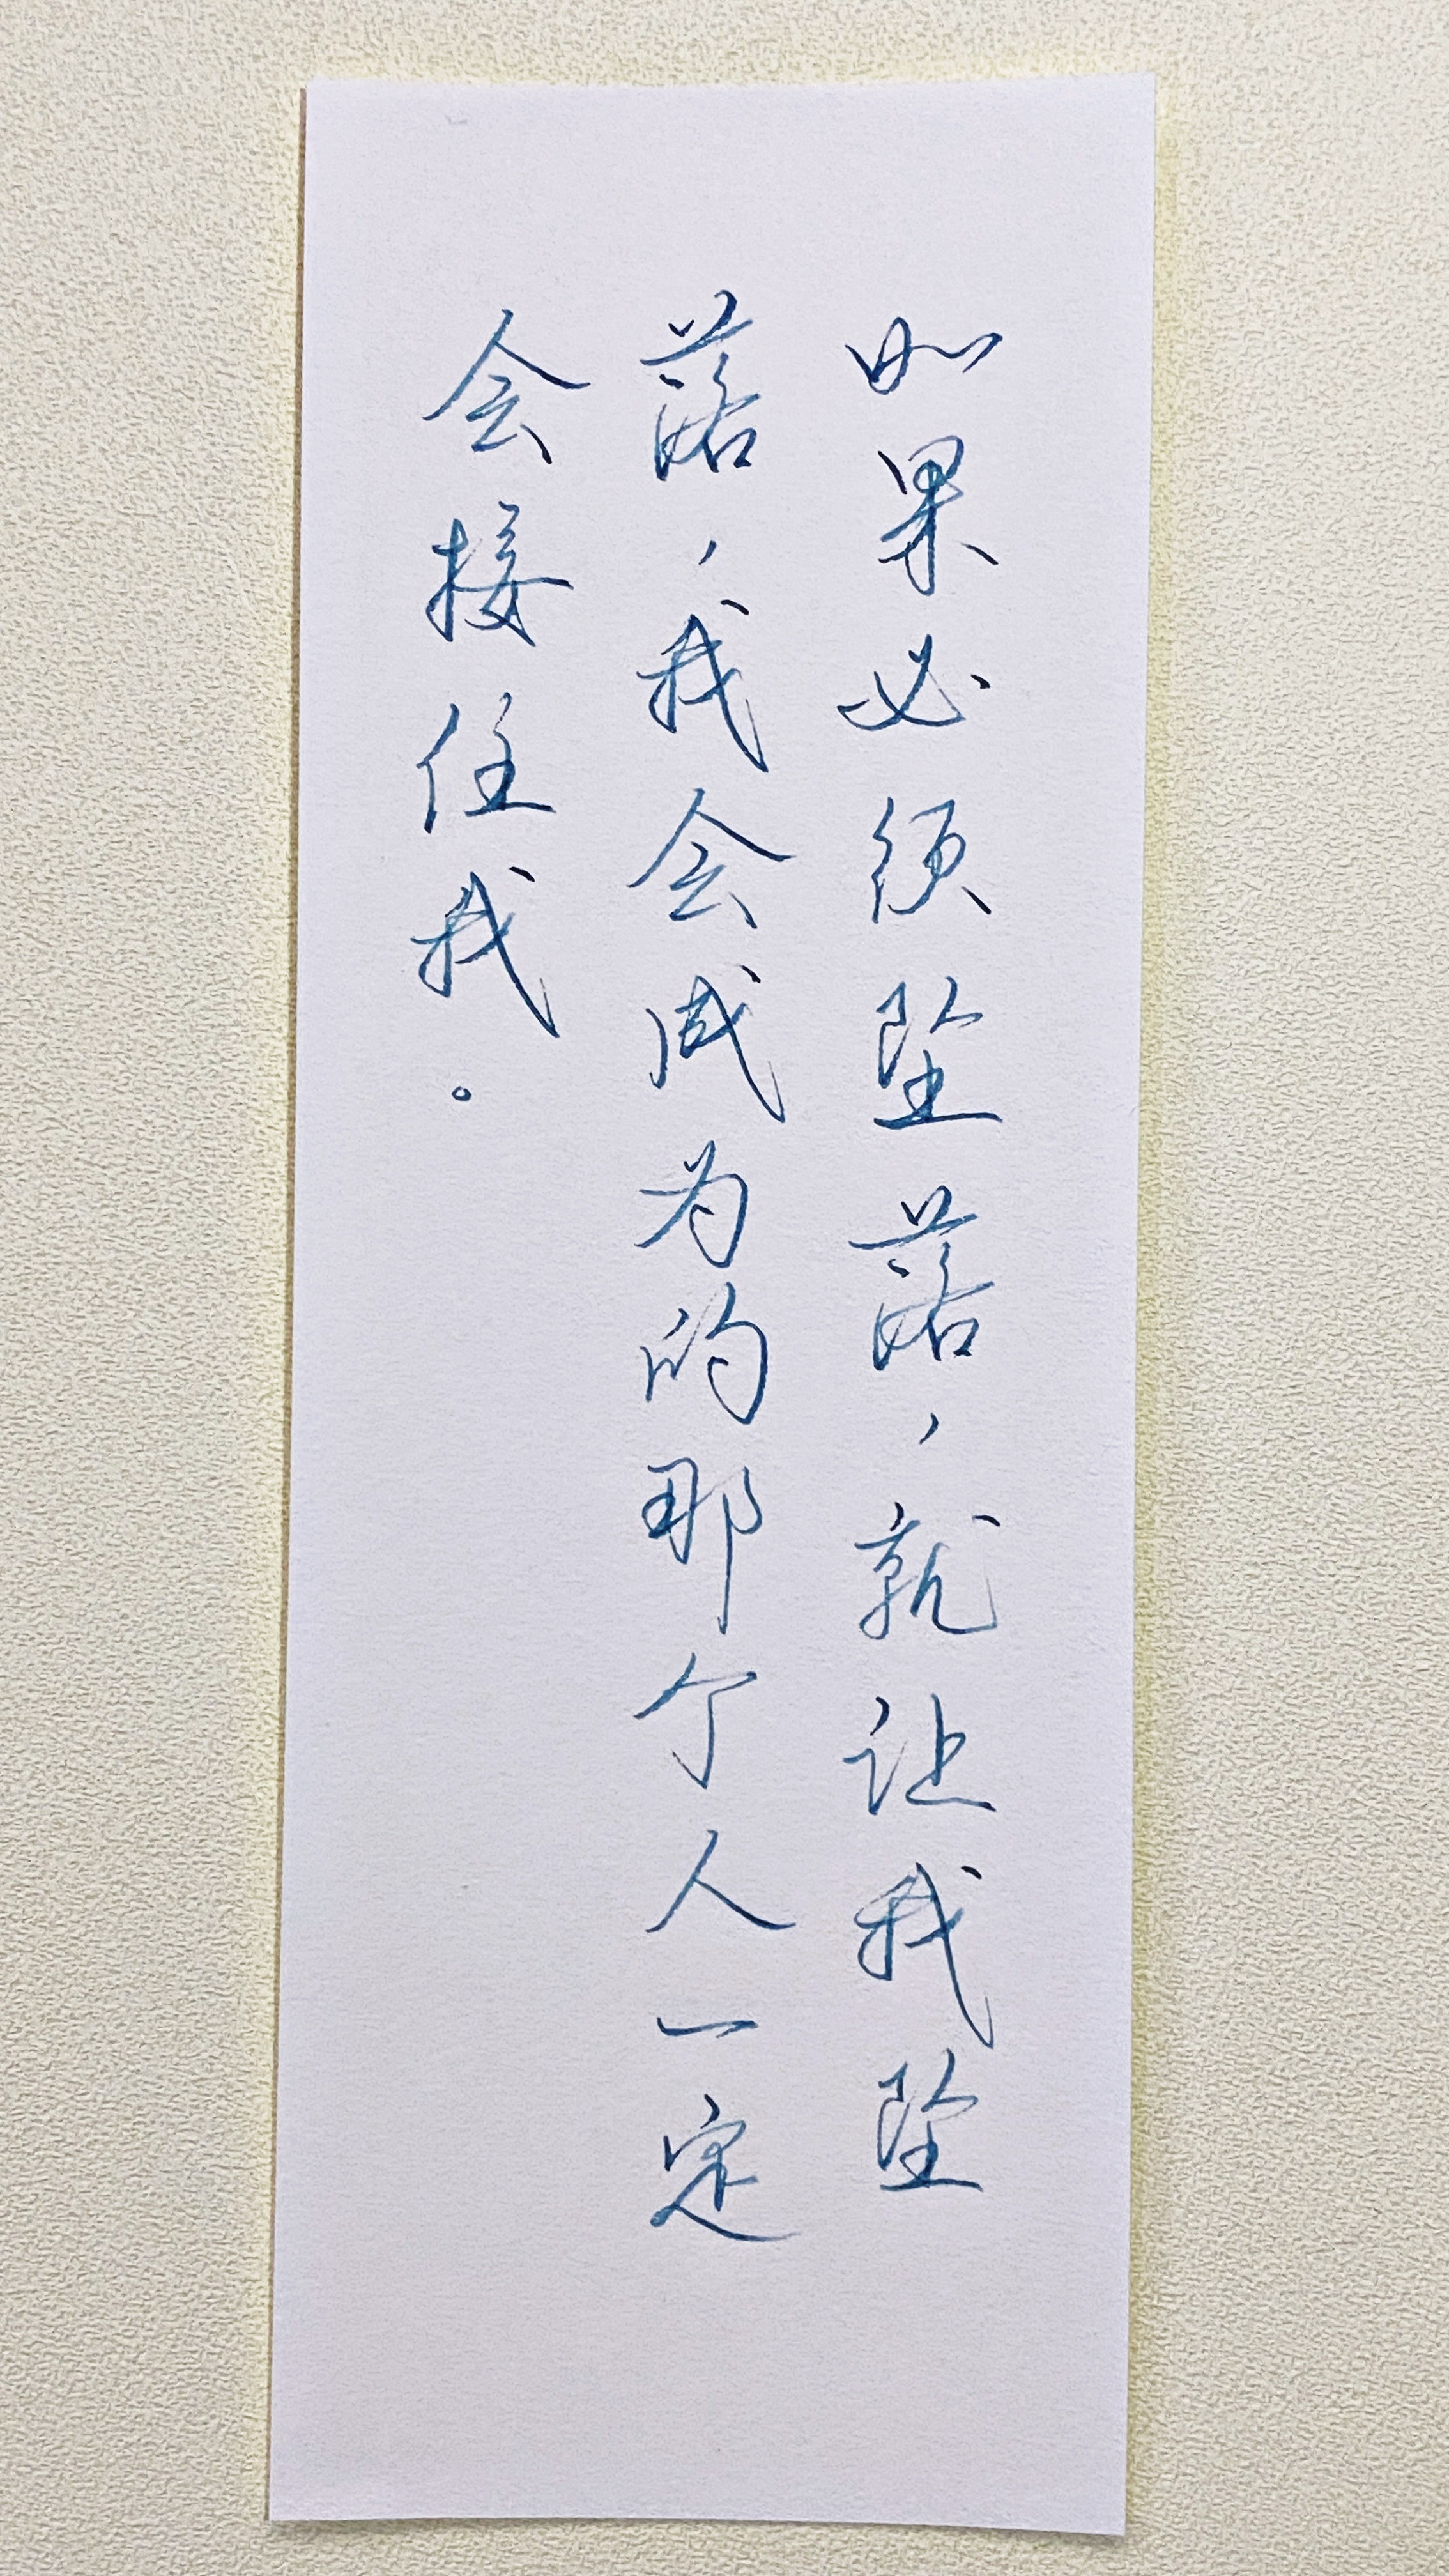 如果必须坠落，就让我坠
落，我会成为的那个人一定
会接住我。